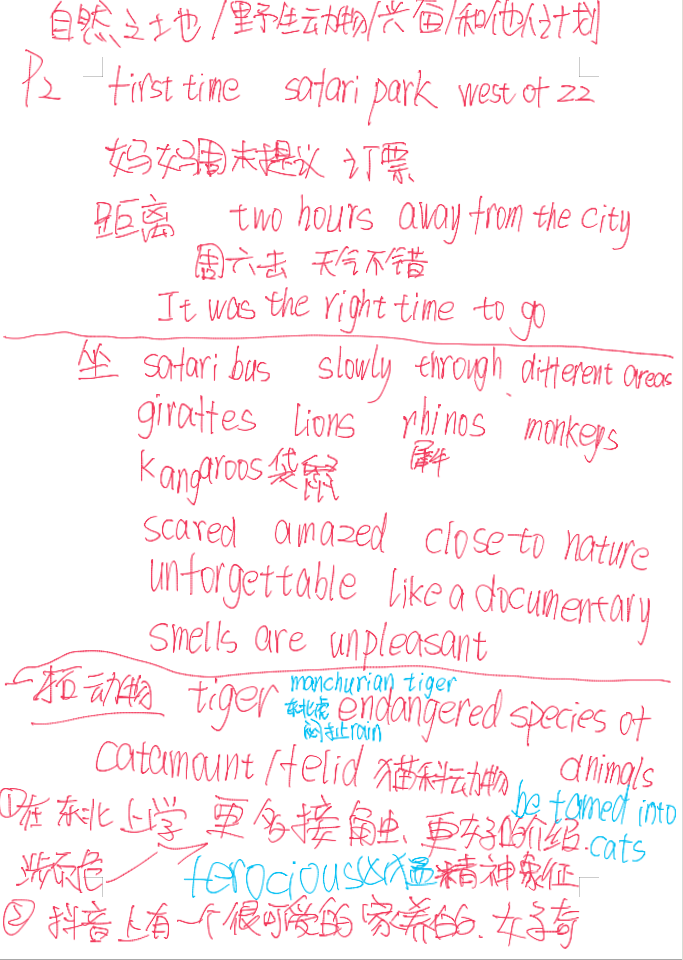 自然之土也/野生动物/兴奋/和他人计划
P2 first time safari park west of ZZ
妈妈周末提议 订票
距离 two hours away from the city
周六去 天气不错
It was the right time to go
坐 safari bus slowly through different areas
giraffes lions rhinos monkeys
kangaroos 袋鼠 犀牛
scared amazed close to nature
unforgettable like a documentary
smells are unpleasant
一种动物 tiger manchurian tiger
东北虎 endangered species of
catamount/felid 猫科动物 animals
be tamed into
①在东北上学 更多接触、更好的介绍. cats
ferocious 精神象征
②抖音上有一个很可爱的 家养的、好奇